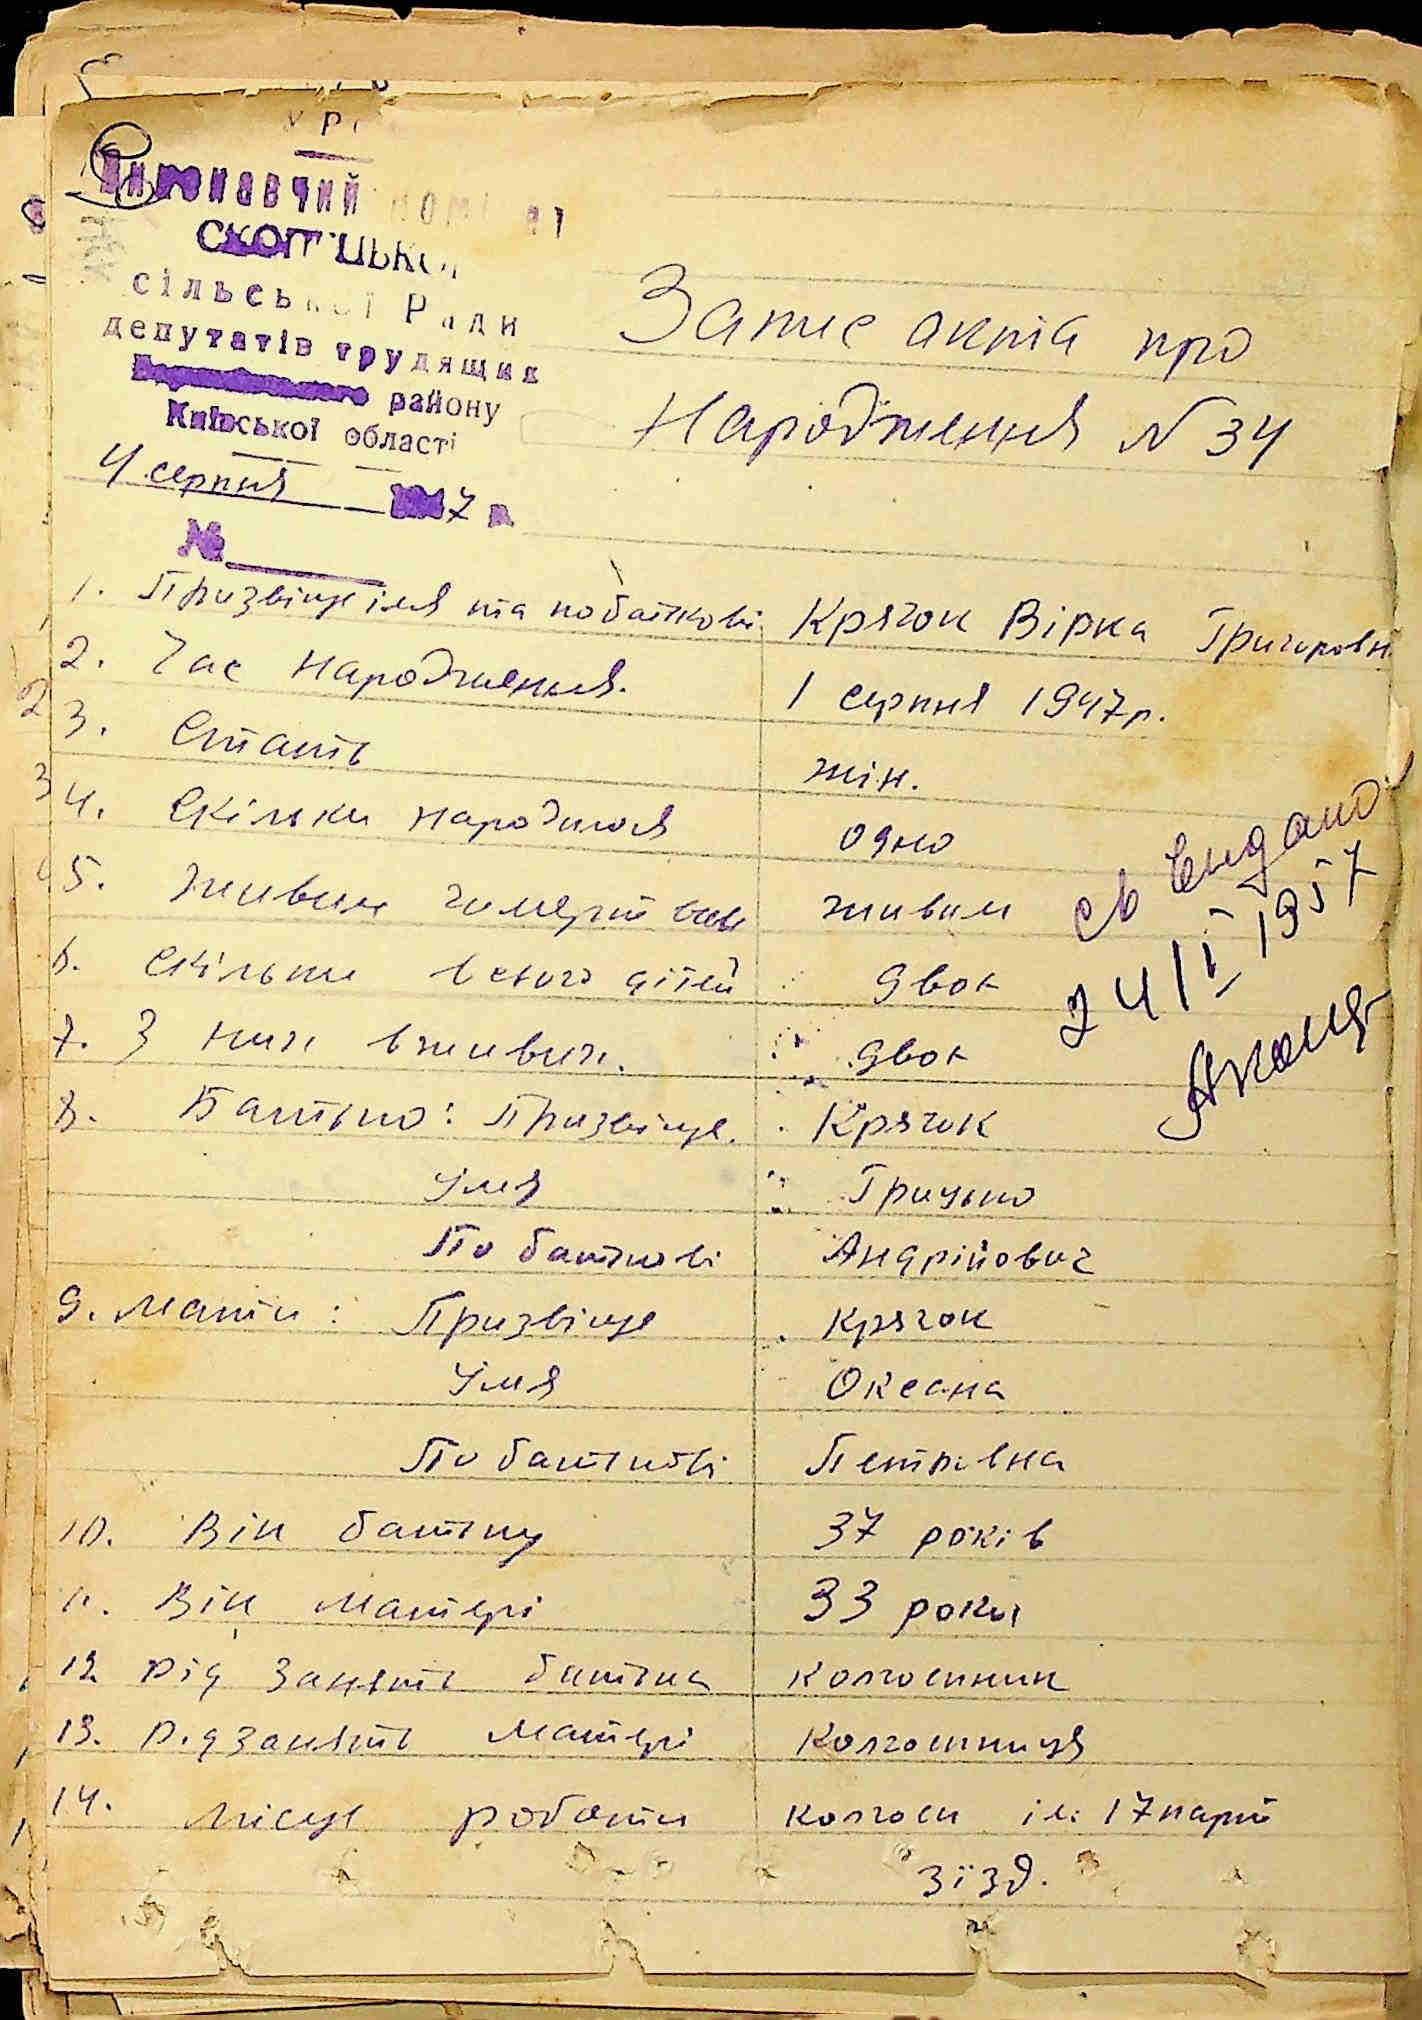 УРС
Виконавчий комітет
сільської Ради
депутатів трудящих
району
Київської області
4 серпня 1947 р.
№
Запис акта про
Народження № 34
1. Призвіще імя та побаткові Крячок Вірка Григоровн
2. Час народження. 1 серпня 1947р.
3. Стать жін.
4. Скільки народилося одно
5. Живим чи мертвим живим
6. Скільки всього дітей двох
7. З них вживих. двох
8. Батько: Призвіще. Крячок
Імя Грицько
По батькові Андрійович
9. Мати: Призвіще Крячок
Імя Оксана
По батькові Петрівна
10. Вік батьку 37 років
11. Вік матері 33 роки
12 рід занять батька колгоспник
13. рід занять матері Колгоспниця
14. місце роботи колгосп ім. 17 парт
зїзд.
св видано
24 II 1957